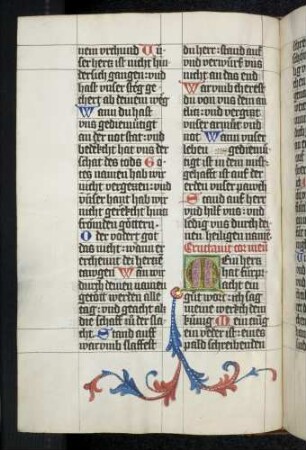 nem vrchund Vn
ser hercz ist nicht hin
der sich gangen vnd
hast vnser steg ge
chert ab deinem weg
Wann du hast
vns gediemutigt
an der not stat vnd
bedekcht hat vns der
schat des tods Go
tes namen hab wir
nicht vergezzen vnd
vnser hant hab wir
nicht gerekcht hincz
fromden gottern
Oder vodert got
das nicht wann er
erchennt dew hercze
tawgen Wan wir
durch deinen namen
getott werden alle
tag vnd geacht als
die schaff zu der sla
cht Stand auff
war vmb slaffest
du herr stand auf
vnd verwurf vns
nicht an das end
War vmb cherest
du von vns dein an
tlicz vnd vergist
vnser armut vnd
Wann vnser
leben gediemu
tigt ist in dem mist
gehafft ist auf der
erden vnser pauch
Stand auf herr
vnd hilf vns vnd
ledig vns durch dei
nen heiligen namen
Eructauit cor meu
Mein hercz
hat furpr
acht ein
gut wort ich sag
meine werch dem
kunig Mein zung
ein veder ist eines
pald schreibenden